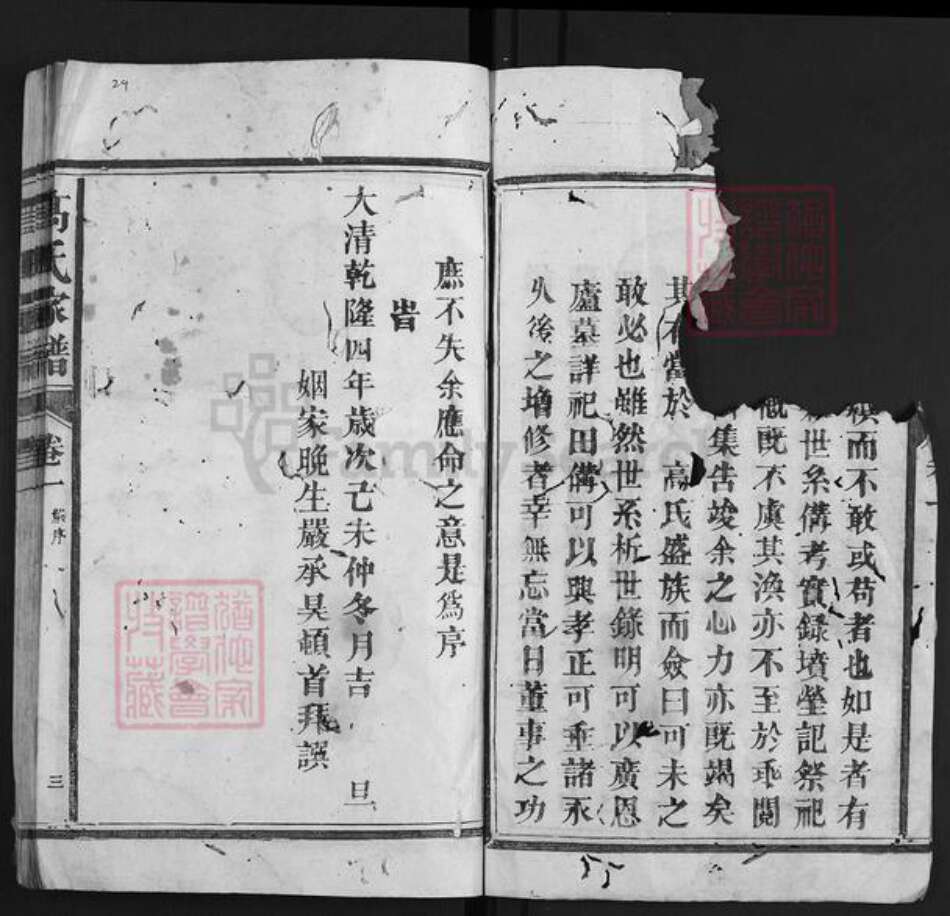 慎而不敢或苟者也如是者有
世系備考實録墳塋記祭祀
概既不虞其渙亦不至於乖閱
集告竣余之心力亦既竭矣
其有當於 高氏盛族而僉曰可未之
敢必也雖然世系析世錄明可以廣恩
廬墓詳祀田備可以興孝正可垂諸永
久後之增修者幸無忘當日董事之功
庶不失余應命之意是爲序
旹
大清乾隆四年歲次己未仲冬月吉 旦
姻家晚生嚴承昊頓首拜譔
高氏家譜
卷一
三
29
譜學會
守藏
Family Search